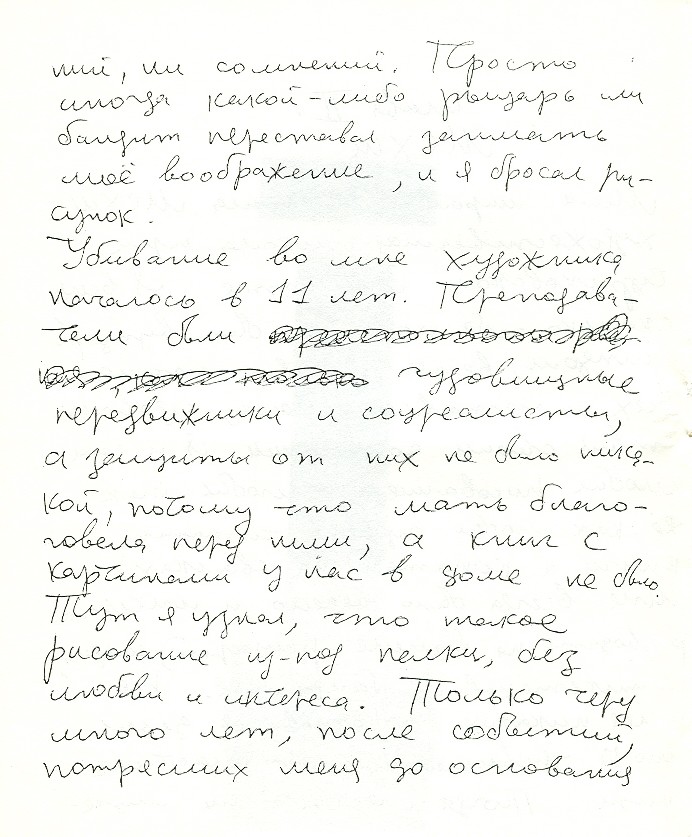 ний, ни сомнений. Просто
иногда какой-либо рыцарь или
бандит переставал занимать
моё воображение, и я бросал ри-
сунок.
Убивание во мне художника
началось в 11 лет. Преподава-
тели были
чудовищные
передвижники и соцреалисты,
а защиты от них не было ника-
кой, потому что мать благо-
говела перед ними, а книг с
картинами у нас в доме не было.
Тут я узнал, что такое
рисование из-под палки, без
любви и интереса. Только через
много лет, после событий,
потрясших меня до основания